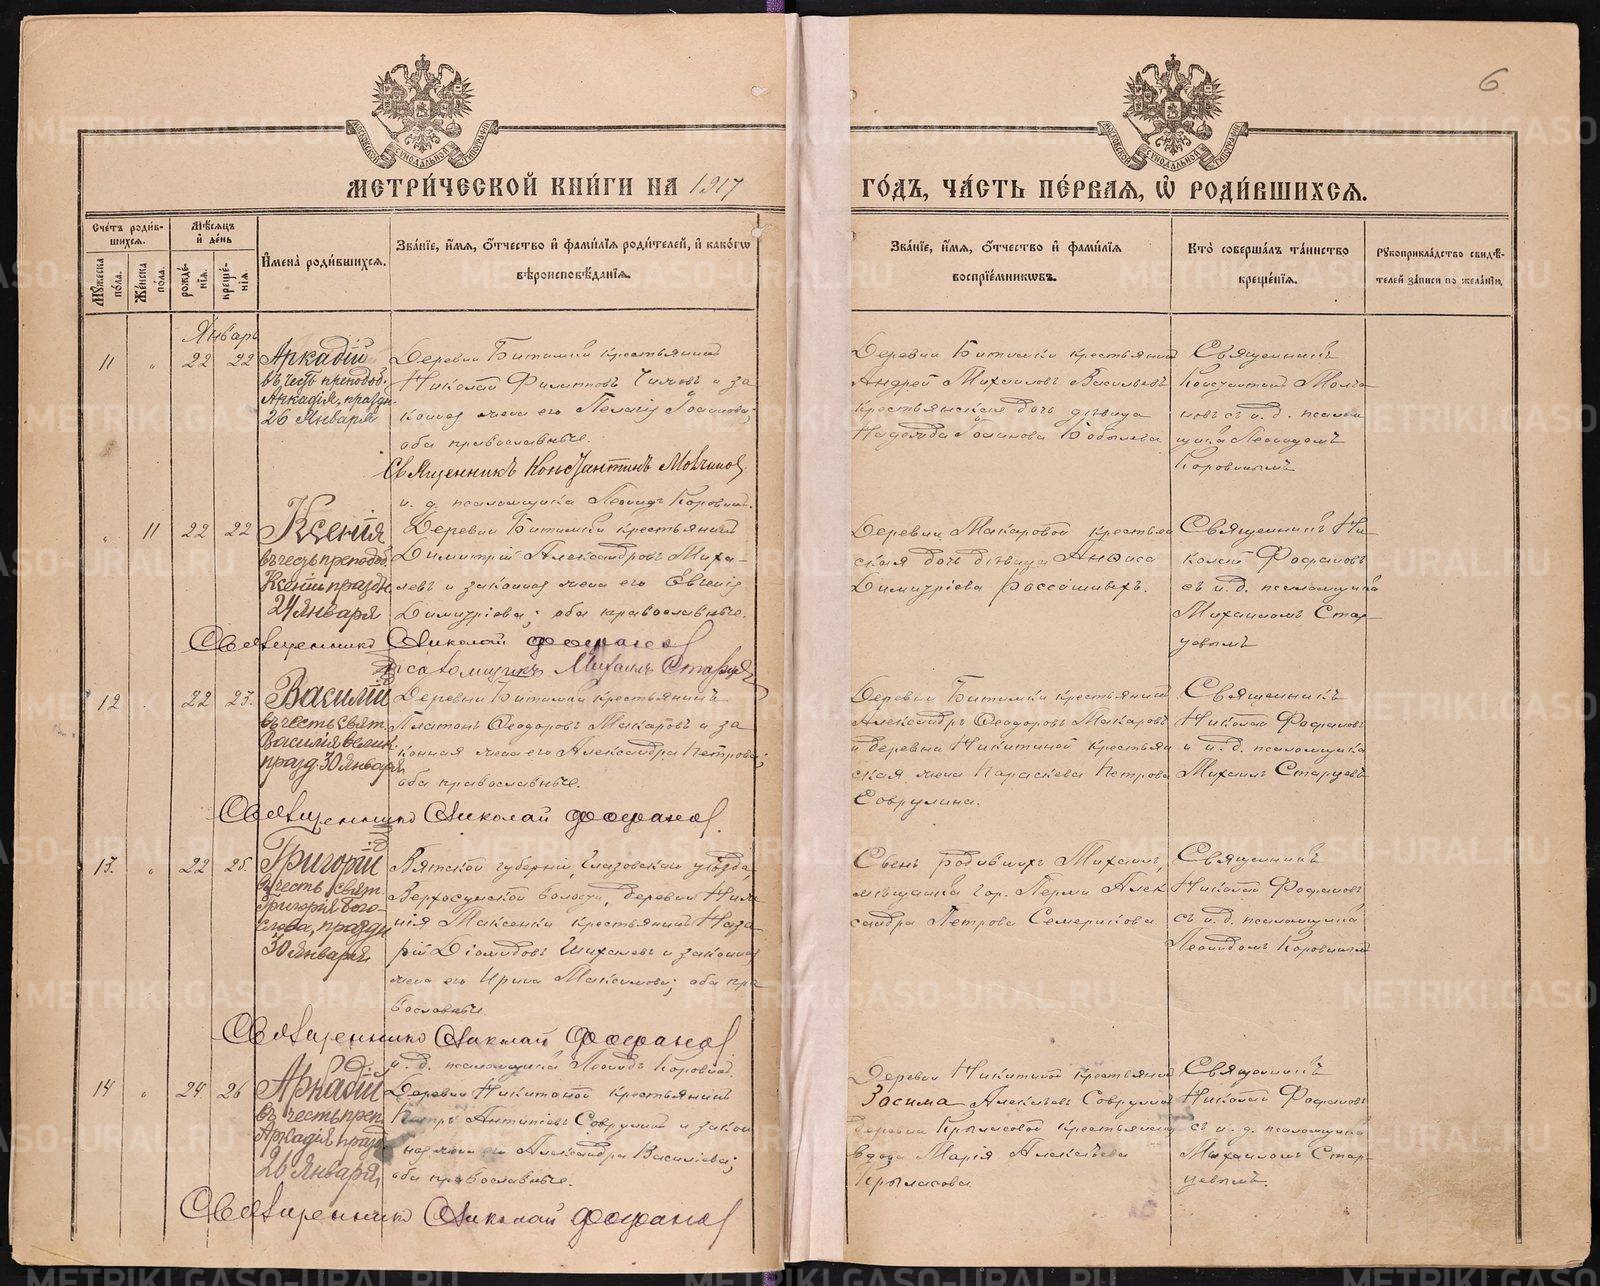 6
МЕТРИ́ЧЕСКОЙ КНИ́ГИ НА 1917 ГО́ДЪ, ЧА́СТЬ ПЕ́РВАЯ, Ѡ РОДИ́ВШИХСЯ.
Сче́тъ роди́вшихся.
Му́жеска по́ла.
Же́нска по́ла.
Мѣ́сяцъ и де́нь
рожде́нїя.
креще́нїя
Имена̀ роди́вшихся.
Зва́нїе, и́мя, о́тчество и фами́лїя роди́телей, и како́гѡ
вѣроисповѣ́данїя.
Зва́нїе, и́мя, о́тчество и фами́лїя
воспрїе́мникѡвъ.
Кто̀ соверша́лъ та́инство
креще́нїя.
Рукоприкла́дство свидѣ́-
телей за́писи по жела́нїю.
Январь
11 " 22 22
Аркадій
въ честь преподоб.
Аркадія, праздн.
26 Января
Деревни Битимки крестьянинъ
Николай Филипповъ и за
конная жена его Пелагія Іоаннова;
оба православные.
Священникъ Константинъ Молчановъ
и. д. псаломщика Леонидъ Коровинъ.
Деревни Битимки крестьянинъ
Андрей Михаиловъ Васильевъ
крестьянская дочь дѣвица
Надежда Іоаннова
Священникъ
Константинъ Молча-
новъ съ и. д. псалом
щика Леонидомъ
Коровинымъ
" 11 22 22
Ксенія
въ честь преподоб.
Ксеніи праздн.
24 Января
Деревни Битимки крестьянинъ
Димитрій Александровъ Миха-
левъ и законная жена его Евгенія
Димитріева; оба православные.
Священникъ Николай Фофановъ
Псаломщикъ Михаилъ Старцевъ
Деревни Макаровой крестьян
ская дочь дѣвица Анфиса
Димитріева Россошныхъ.
Священникъ Ни-
колай Фофановъ
съ и. д. псаломщика
Михаиломъ Стар-
цевымъ
12 . 22 23.
Василій
въ честь свят.
Василія велик.
празд. 30 Января
Деревни Битимки крестьянинъ
Платонъ Ѳеодоровъ Макаровъ и за
конная жена его Александра Петрова;
оба православные.
Священникъ Николай Фофановъ
Деревни Битимки крестьянинъ
Александръ Ѳеодоровъ Макаровъ
и деревни Никитиной крестьян
ская жена Параскева Петрова
Соврулина.
Священникъ
Николай Фофановъ
и и. д. псаломщика
Михаилъ Старцевъ
13. " 22 25.
Григорій
въ честь свят.
Григорія Бого-
слова, праздн
30 Января
Вятской губерніи, Глазовскаго уѣзда,
Верхосунской волости, деревни
Максенки крестьянинъ Наза
рій Діомидовъ Шихалевъ и законная
жена его Ирина Максимова; оба пра
вославные.
Священникъ Николай Фофановъ
и. д. псаломщика Леонидъ Коровинъ.
Сынъ родившихъ Михаилъ,
мѣщанка гор. Перми Алек
сандра Петрова Семерикова
Священникъ
Николай Фофановъ
съ и. д. псаломщика
Леонидомъ Коровинымъ
14 " 24 26
Аркадій
въ честь преп.
Аркадія празд
26 Января
Деревни Никитиной крестьянинъ
Петръ Антиповъ Соврулинъ и закон
ная жена его Александра Василіева;
оба православные.
Священникъ Николай Фофановъ
Деревни Никитиной крестьянинъ
Зосима Алексѣевъ Соврулинъ
деревни Крыласовой крестьянская
вдова Марія Алексѣева
Крыласова
Священникъ
Николай Фофановъ
съ и. д. псаломщика
Михаиломъ Стар-
цевымъ.
METRIKI.GASO-URAL.RU